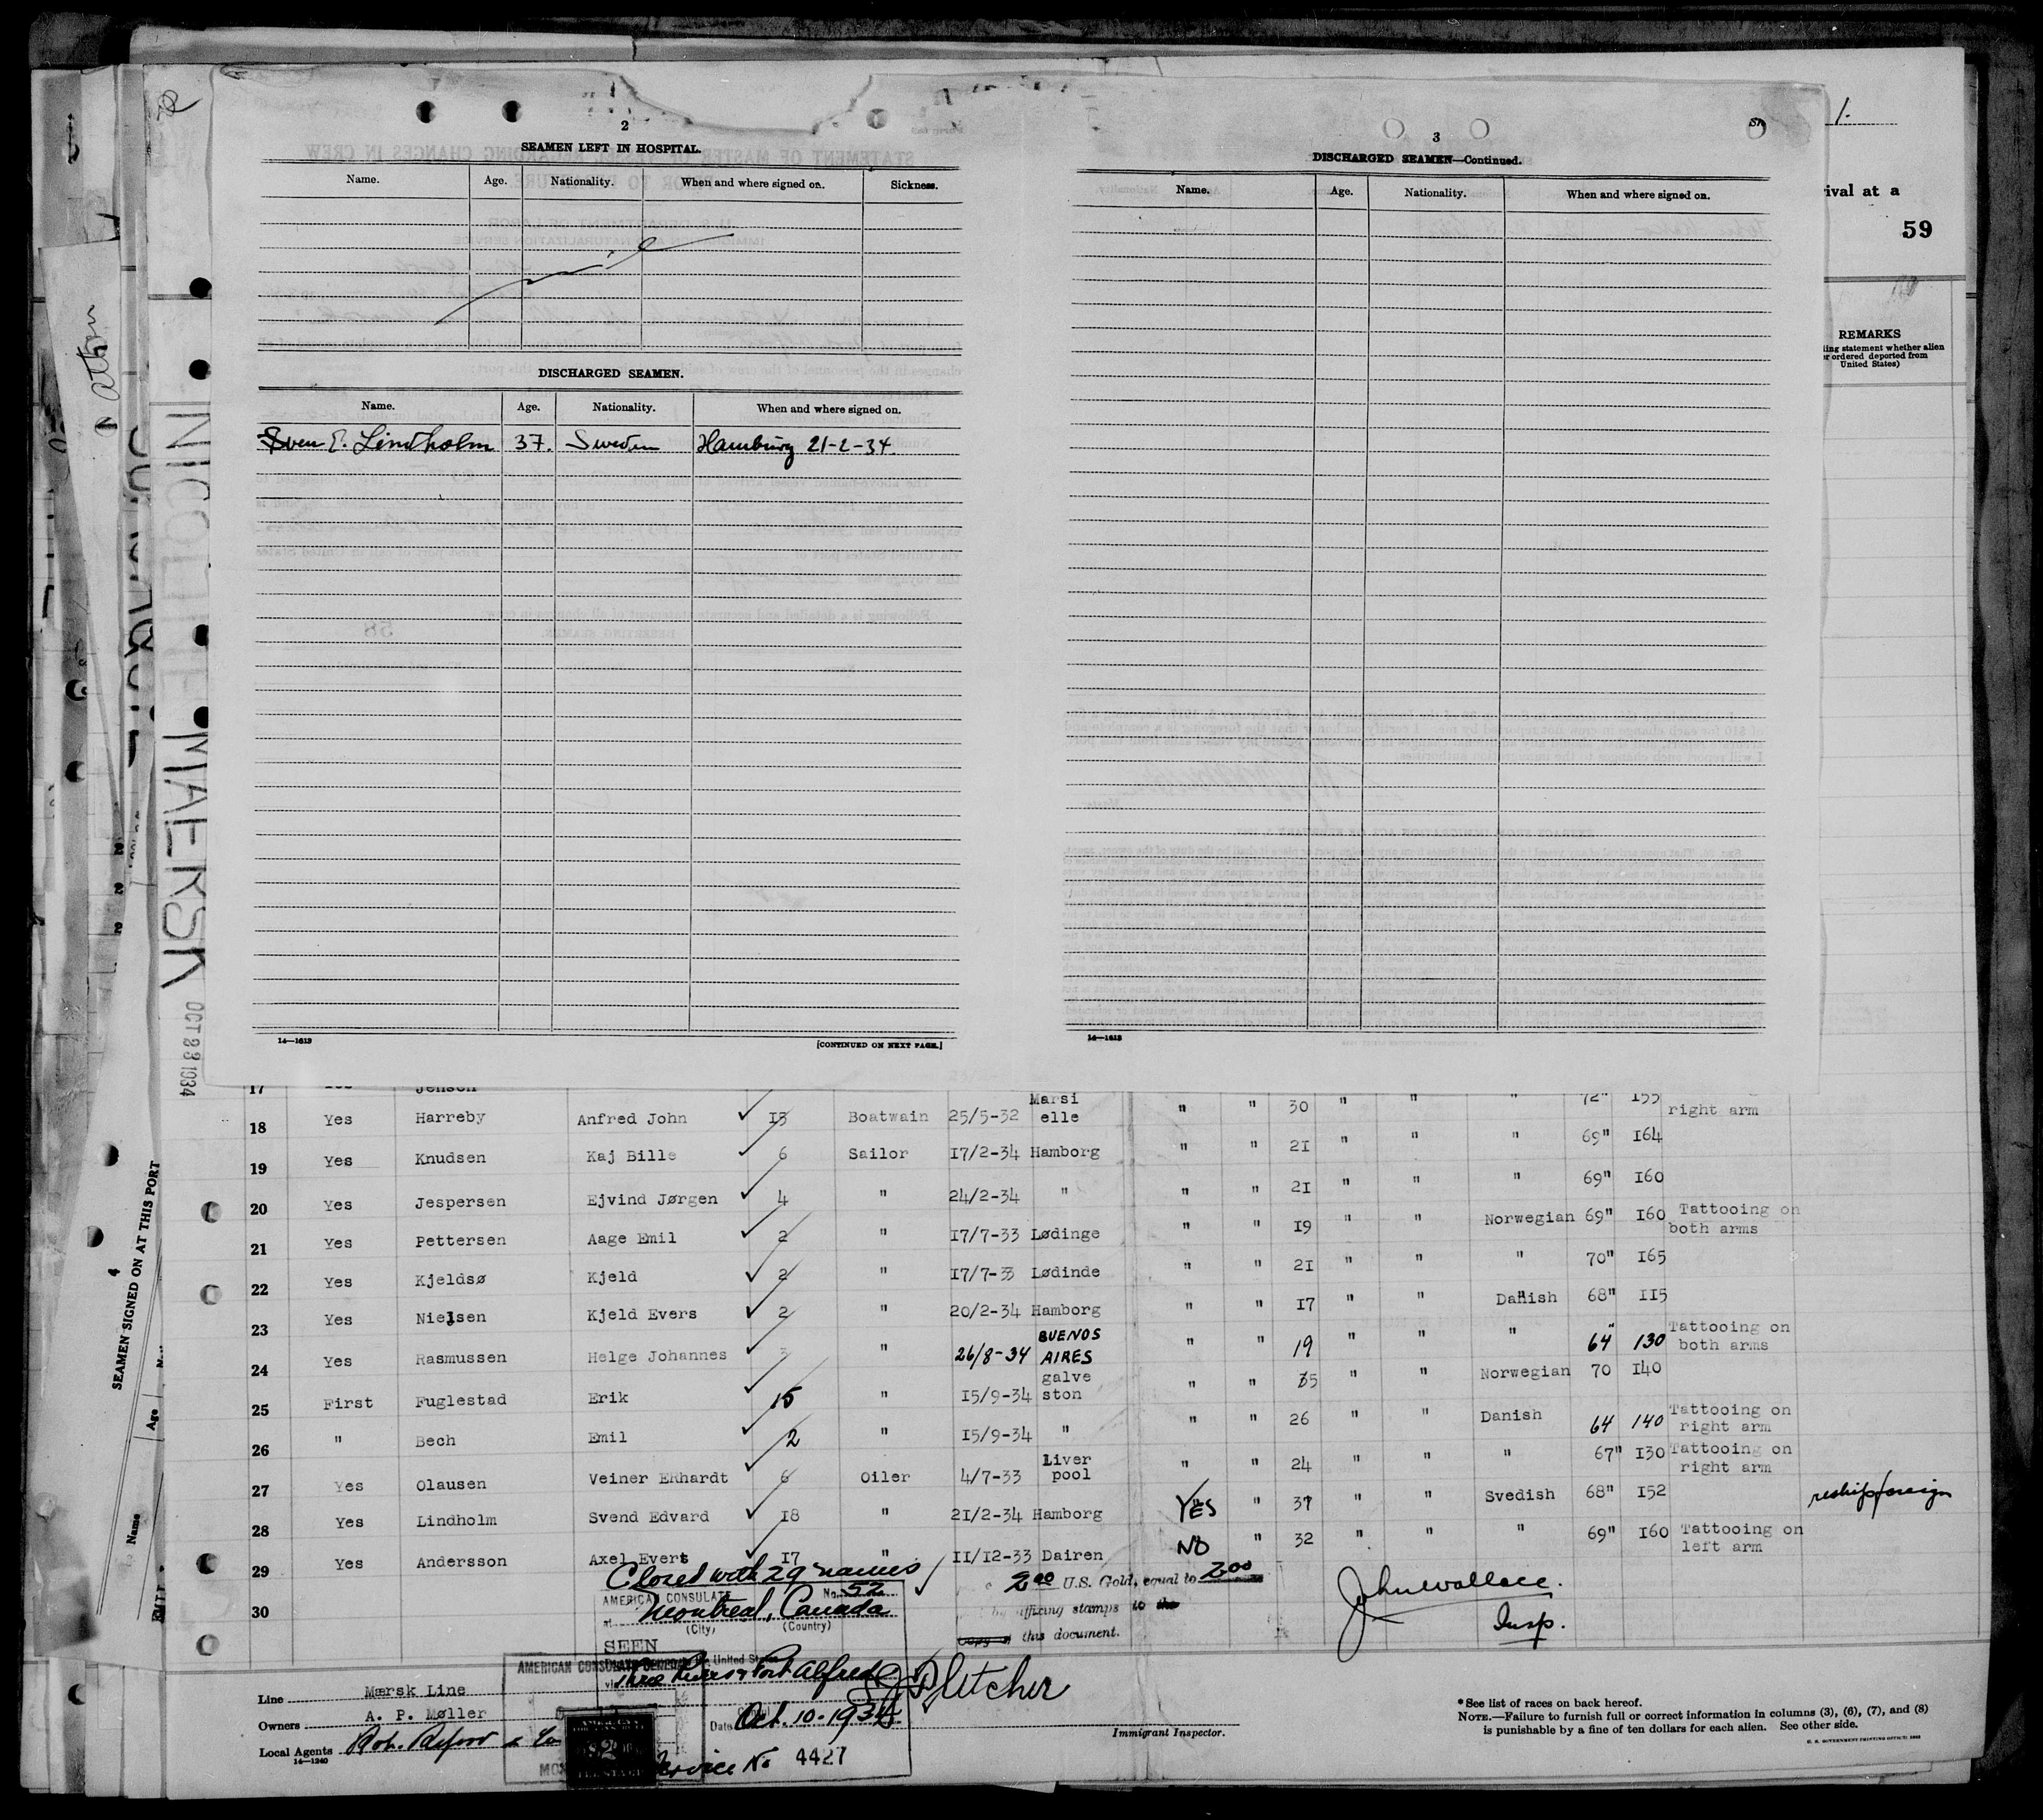 2
SEAMEN LEFT IN HOSPITAL.
Name. Age. Nationality. When and where signed on. Sickness.
DISCHARGED SEAMEN.
Name. Age. Nationality. When and where signed on.
Sven E. Lindholm 37. Sweden Hamburg 21-2-34.
14—1613 [CONTINUED ON NEXT PAGE.]
3
DISCHARGED SEAMEN—Continued.
Name. Age. Nationality. When and where signed on.
14—1613
1.
rival at a
59
REMARKS
ling statement whether alien
r ordered deported from
United States)
MAERSK
4
SEAMEN SIGNED ON AT THIS PORT
Name Age
17 Jensen 72" 155
18 Yes Harreby Anfred John 15 Boatwain 25/5-32 Marsi elle " " 30 " " " right arm
19 Yes Knudsen Kaj Bille 6 Sailor 17/2-34 Hamborg " " 21 " " " 69" 164
20 Yes Jespersen Ejvind Jørgen 4 " 24/2-34 " " " 21 " " " 69" 160
21 Yes Pettersen Aage Emil 2 " 17/7-33 Lødinge " " 19 " " Norwegian 69" 160 Tattooing on both arms
22 Yes Kjeldsø Kjeld 2 " 17/7-33 Lødinde " " 21 " " " 70" 165
23 Yes Nielsen Kjeld Evers 2 " 20/2-34 Hamborg " " 17 " " Danish 68" 115
24 Yes Rasmussen Helge Johannes 3 " 26/8-34 BUENOS AIRES " " 19 " " " 64" 130 Tattooing on both arms
25 First Fuglestad Erik 15 " 15/9-34 galve ston " " 35 " " Norwegian 70 140
26 " Bech Emil 2 " 15/9-34 " " " 26 " " Danish 64 140 Tattooing on right arm
27 Yes Olausen Veiner Ehhardt 6 Oiler 4/7-33 Liver pool " " 24 " " " 67" 130 Tattooing on right arm
28 Yes Lindholm Svend Edvard 18 " 21/2-34 Hamborg YES " 37 " " Svedish 68" 152 reship foreign
29 Yes Andersson Axel Evert 17 " 11/12-33 Dairen NO " 32 " " " 69" 160 Tattooing on left arm
30
Closed with 29 names
AMERICAN CONSULATE No. 52
at Montreal, Canada
(City) (Country)
SEEN
United States
via Three Rivers & Port Alfred
Date Oct. 10-1934
Service No 4427
2 00 U.S. Gold, equal to 2 00
by affixing stamps to the
copy of this document.
John Wallace.
Insp.
AMERICAN CONSULATE GENERAL
Fletcher
Line Mærsk Line
Owners A. P. Møller
Local Agents Rob. Reford & Co
14—1240
Immigrant Inspector.
* See list of races on back hereof.
NOTE.—Failure to furnish full or correct information in columns (3), (6), (7), and (8)
is punishable by a fine of ten dollars for each alien. See other side.
U. S. GOVERNMENT PRINTING OFFICE: 1932